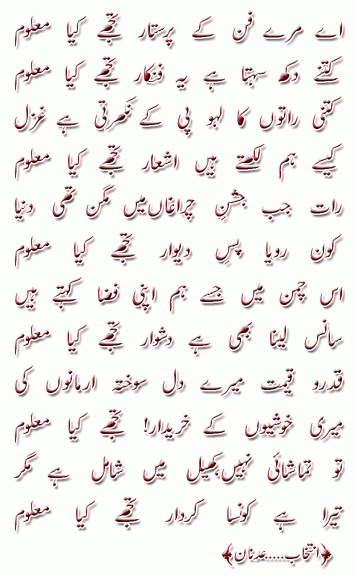 اے مرے فن کے پرستار تجھے کیا معلوم
کتنے دکھ سہتا ہے یہ فنکار تجھے کیا معلوم
کتنی راتوں کا لہو پی کے نکھرتی ہے غزل
کیسے ہم لکھتے ہیں اشعار تجھے کیا معلوم
رات جب جشنِ چراغاں میں مگن تھی دنیا
کون رویا پسِ دیوار تجھے کیا معلوم
اس چمن میں جسے ہم اپنی فضا کہتے ہیں
سانس لینا بھی ہے دشوار تجھے کیا معلوم
قدرو قیمت میرے دل سوختہ ارمانوں کی
میری خوشیوں کے خریدار! تجھے کیا معلوم
تو تماشائی نہیں،کھیل میں شامل ہے مگر
تیرا ہے کونسا کردار تجھے کیا معلوم
﴿انتخاب.....عدنان﴾